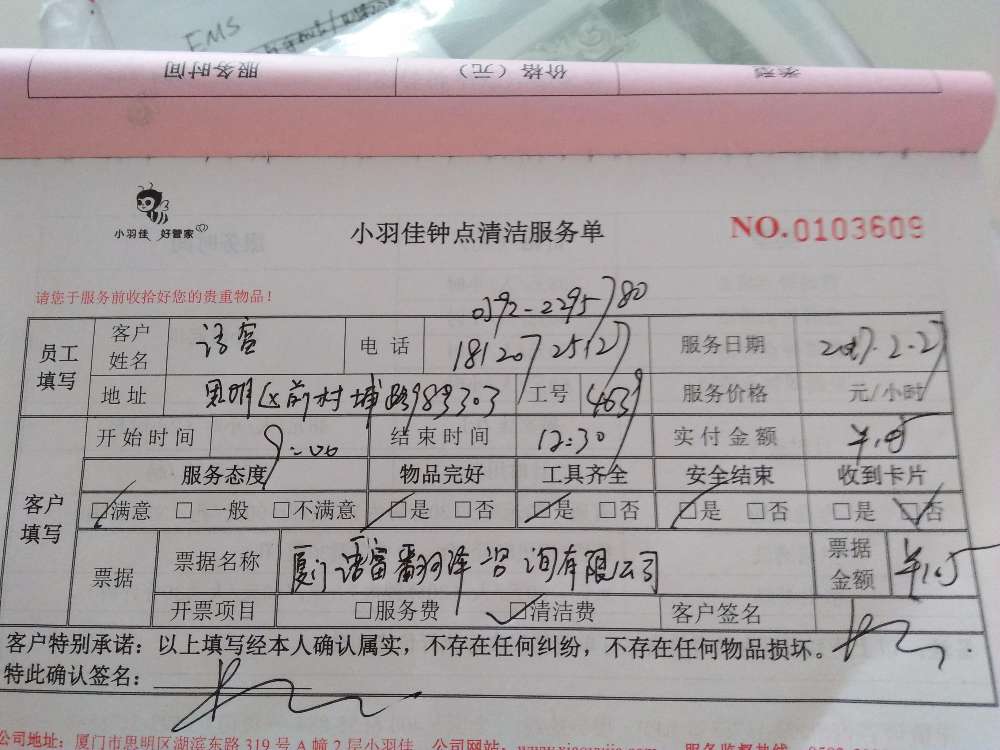 EMS
服务时间 价格（元） 类型
小羽佳 好管家
小羽佳钟点清洁服务单
NO.0103609
请您于服务前收拾好您的贵重物品！
0592-2295780
员工填写 客户姓名 语富 电话 18120725127 服务日期 2017.2.27
地址 思明区前村埔路 303 工号 4639 服务价格 元/小时
客户填写 开始时间 9:00 结束时间 12:30 实付金额
服务态度 物品完好 工具齐全 安全结束 收到卡片
☑满意 □ 一般 □不满意 ☑是 □否 ☑是 □否 ☑是 □否 □是 ☑否
票据 票据名称 厦门语富翻译咨询有限公司 票据金额
开票项目 □服务费 ☑清洁费 客户签名
客户特别承诺：以上填写经本人确认属实，不存在任何纠纷，不存在任何物品损坏。
特此确认签名：
公司地址：厦门市思明区湖滨东路 319 号 A 幢 2 层小羽佳 公司网站： 服务监督热线